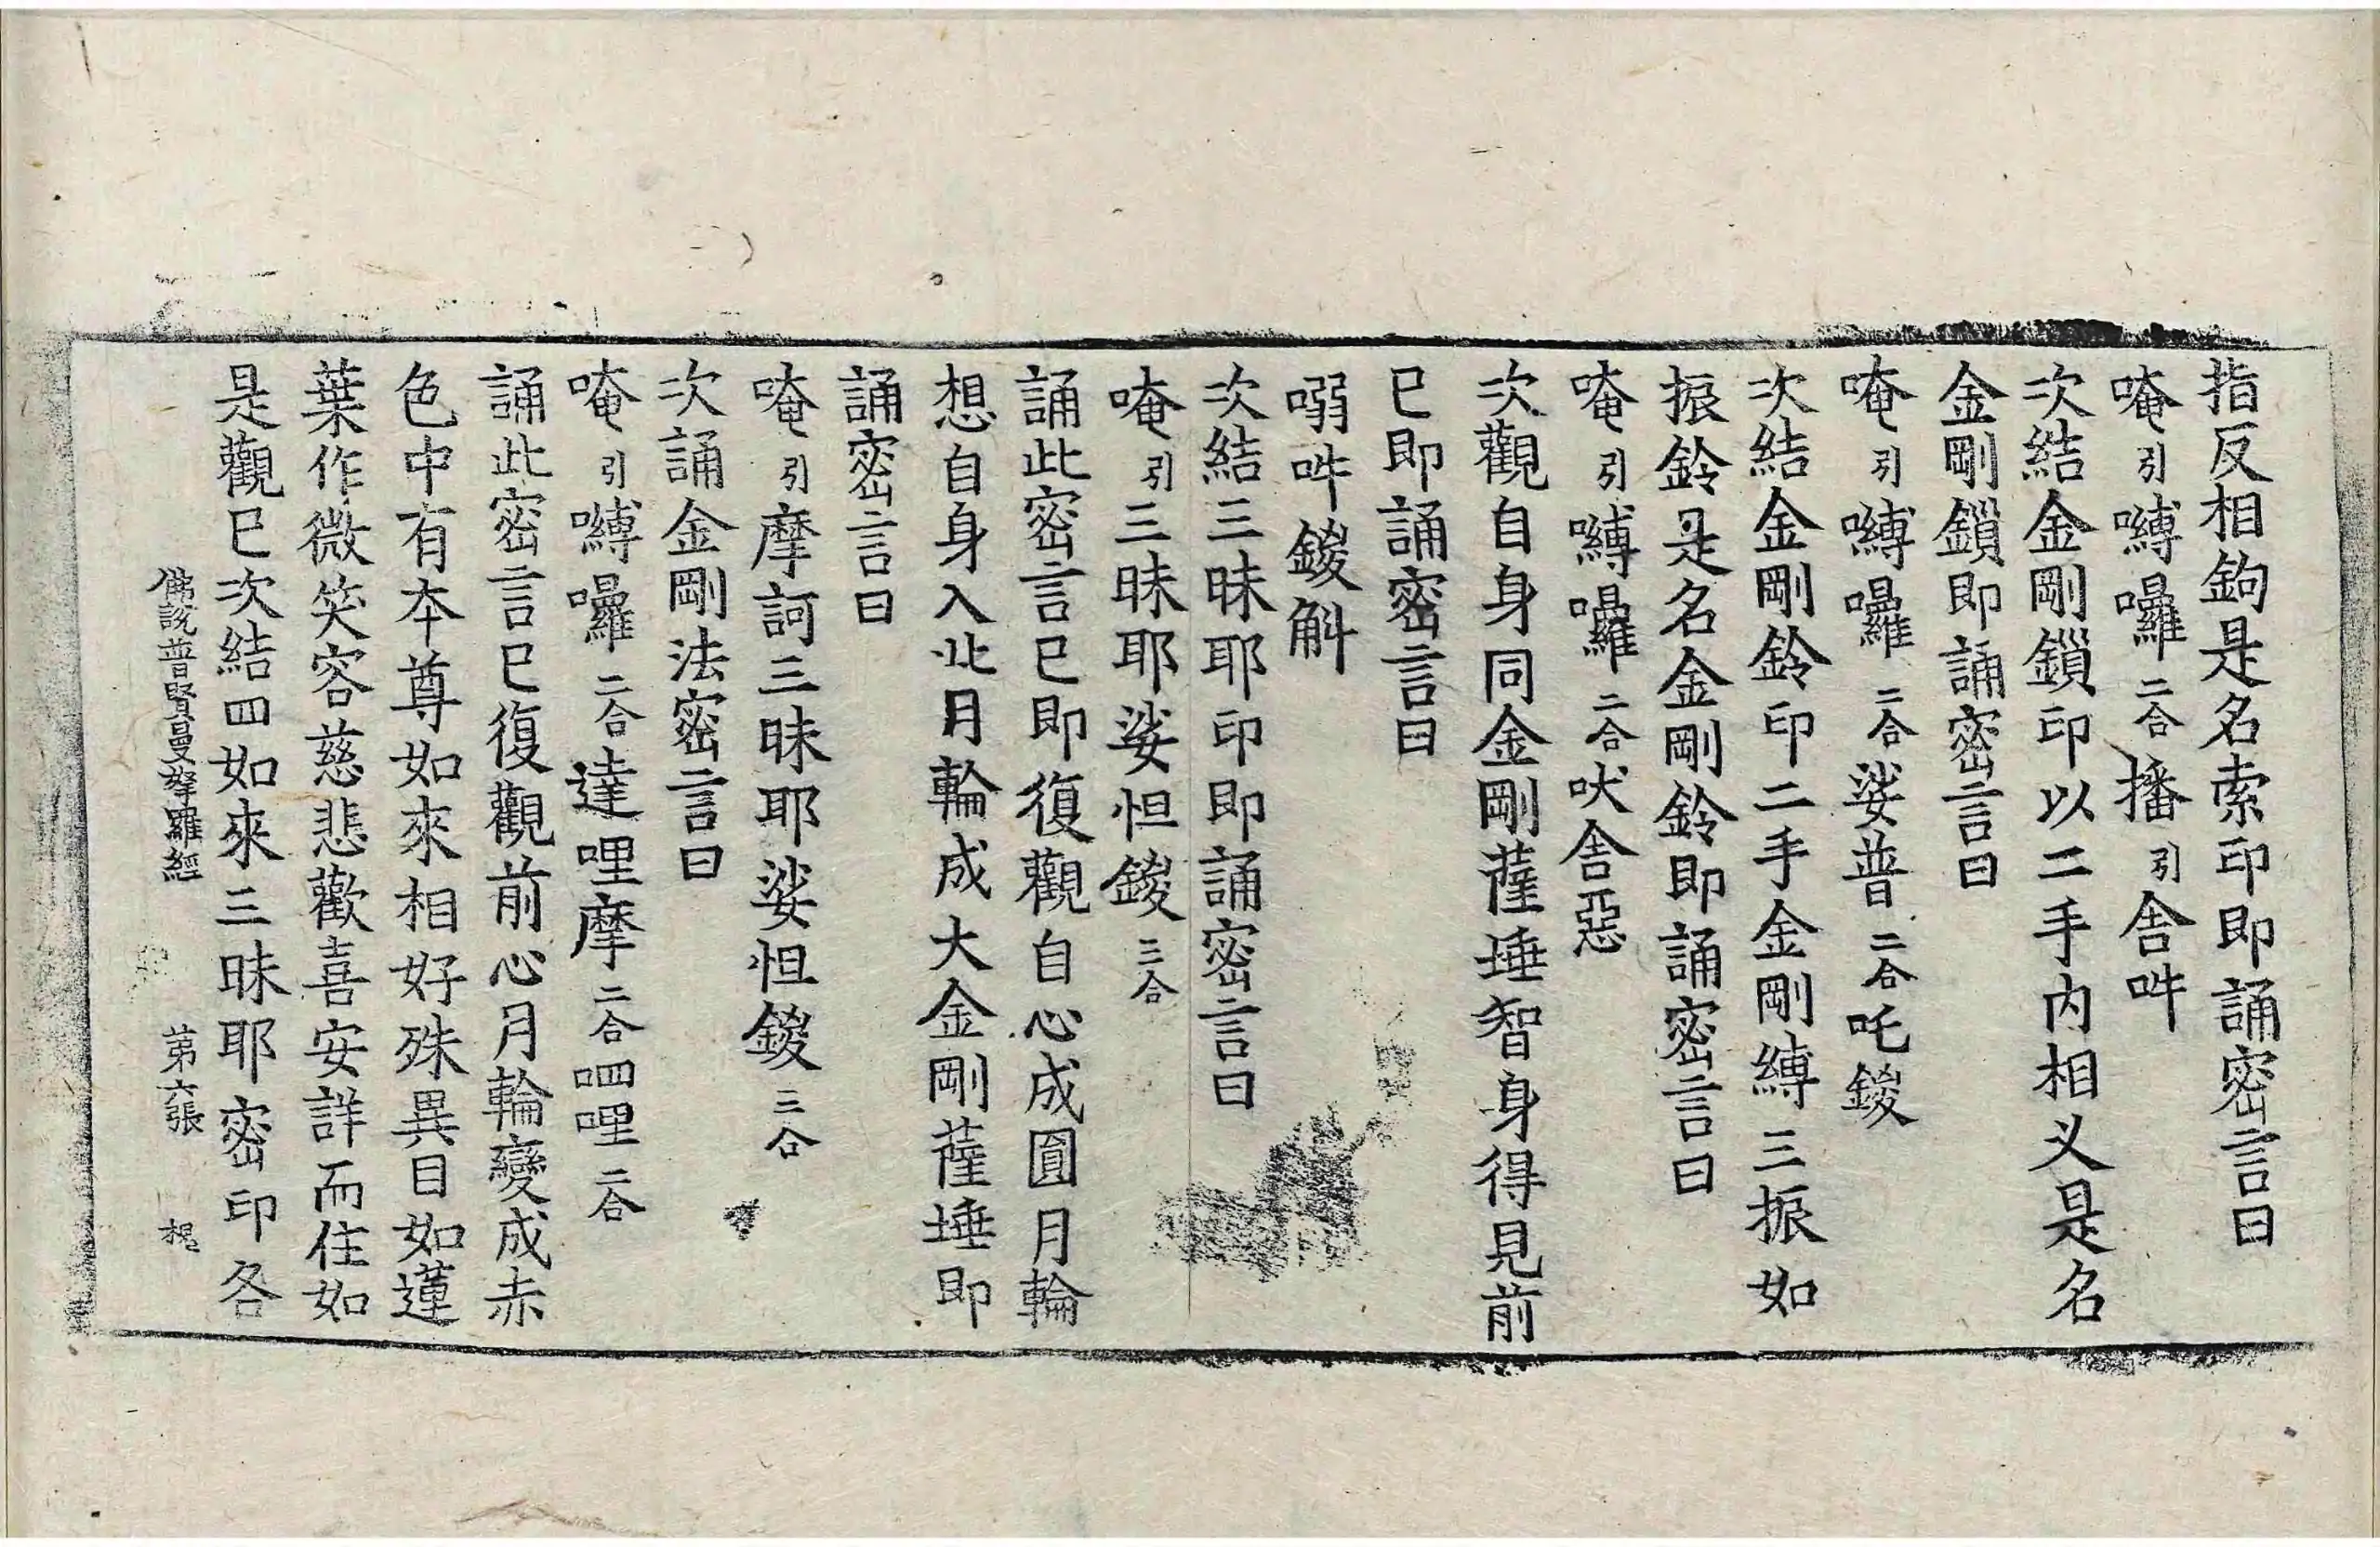 指反相鉤是名索印即誦密言曰
唵引嚩囉二合播引舍吽
次結金剛鎖印以二手内相叉是名
金剛鎖即誦密言曰
唵引嚩囉二合娑普二合吒鍐
次結金剛鈴印二手金剛縛三振如
振鈴是名金剛鈴即誦密言曰
唵引嚩囉二合吠舍惡
次觀自身同金剛薩埵智身得見前
已即誦密言曰
嗗吽鍐斛
次結三昧耶印即誦密言曰
唵引三昧耶娑怛鍐三合
誦此密言已即復觀自心成圓月輪
想自身入此月輪成大金剛薩埵即
誦密言曰
唵引摩訶三昧耶娑怛鍐三合
次誦金剛法密言曰
唵引嚩囉二合達哩摩二合呬哩二合
誦此密言已復觀前心月輪變成赤
色中有本尊如來相好殊異目如蓮
葉作微笑容慈悲歡喜安詳而住如
是觀已次結四如來三昧耶密印各
佛說普賢曼拏羅經 第六張